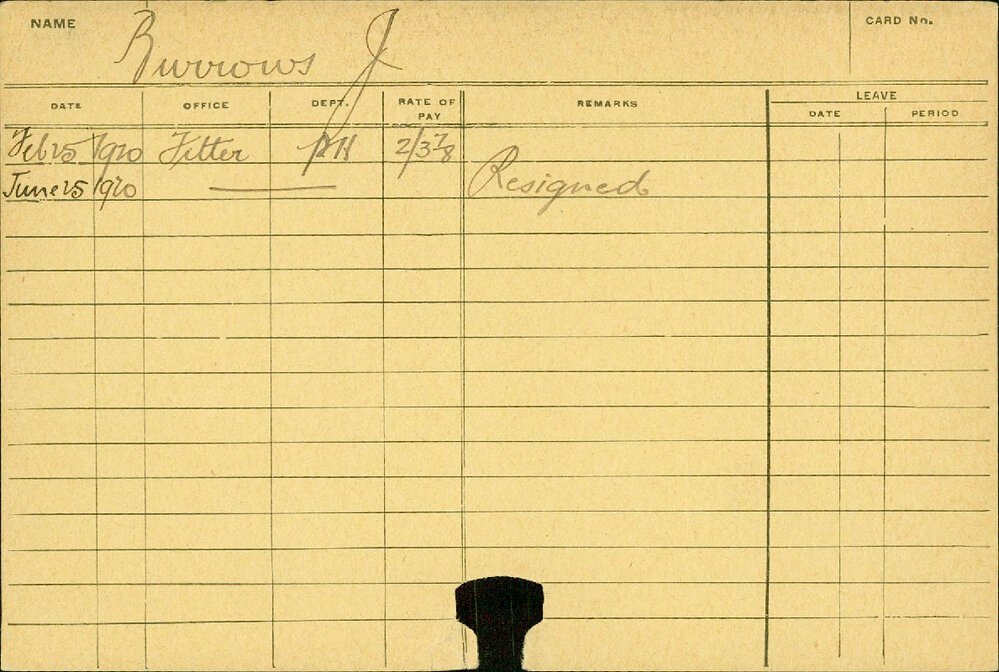 NAME Burrows J CARD No.
LEAVE
DATE OFFICE DEPT. RATE OF PAY REMARKS DATE PERIOD
Feb 25 1920 Fitter PH 2/3 7/8
June 25 1920 Resigned